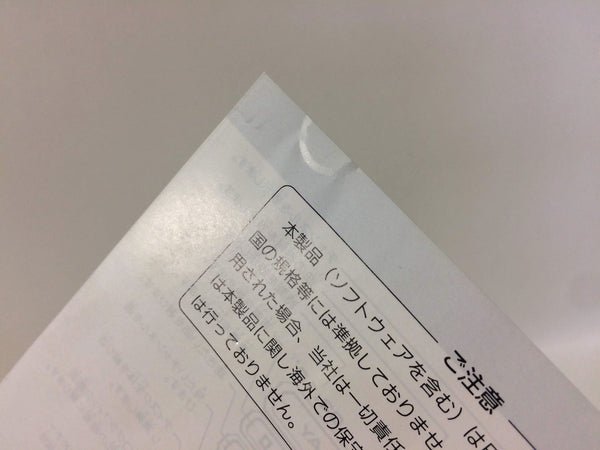 ご注意
本製品（ソフトウェアを含む）は日
国の規格等には準拠しておりませ
用された場合、当社は一切責任
は本製品に関し海外での保守
は行っておりません。